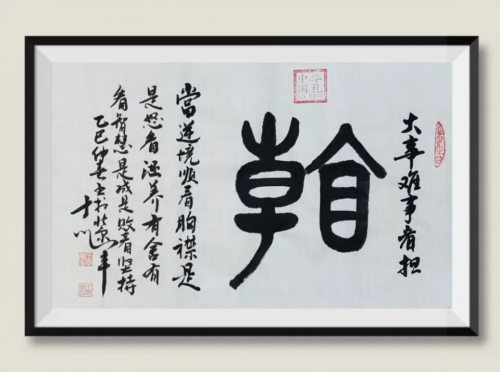 大事难事看担
當逆境顺看胸襟是
是怒看涵养有舍有
看智慧是成是败看坚持
乙巳仲春书于北京丰